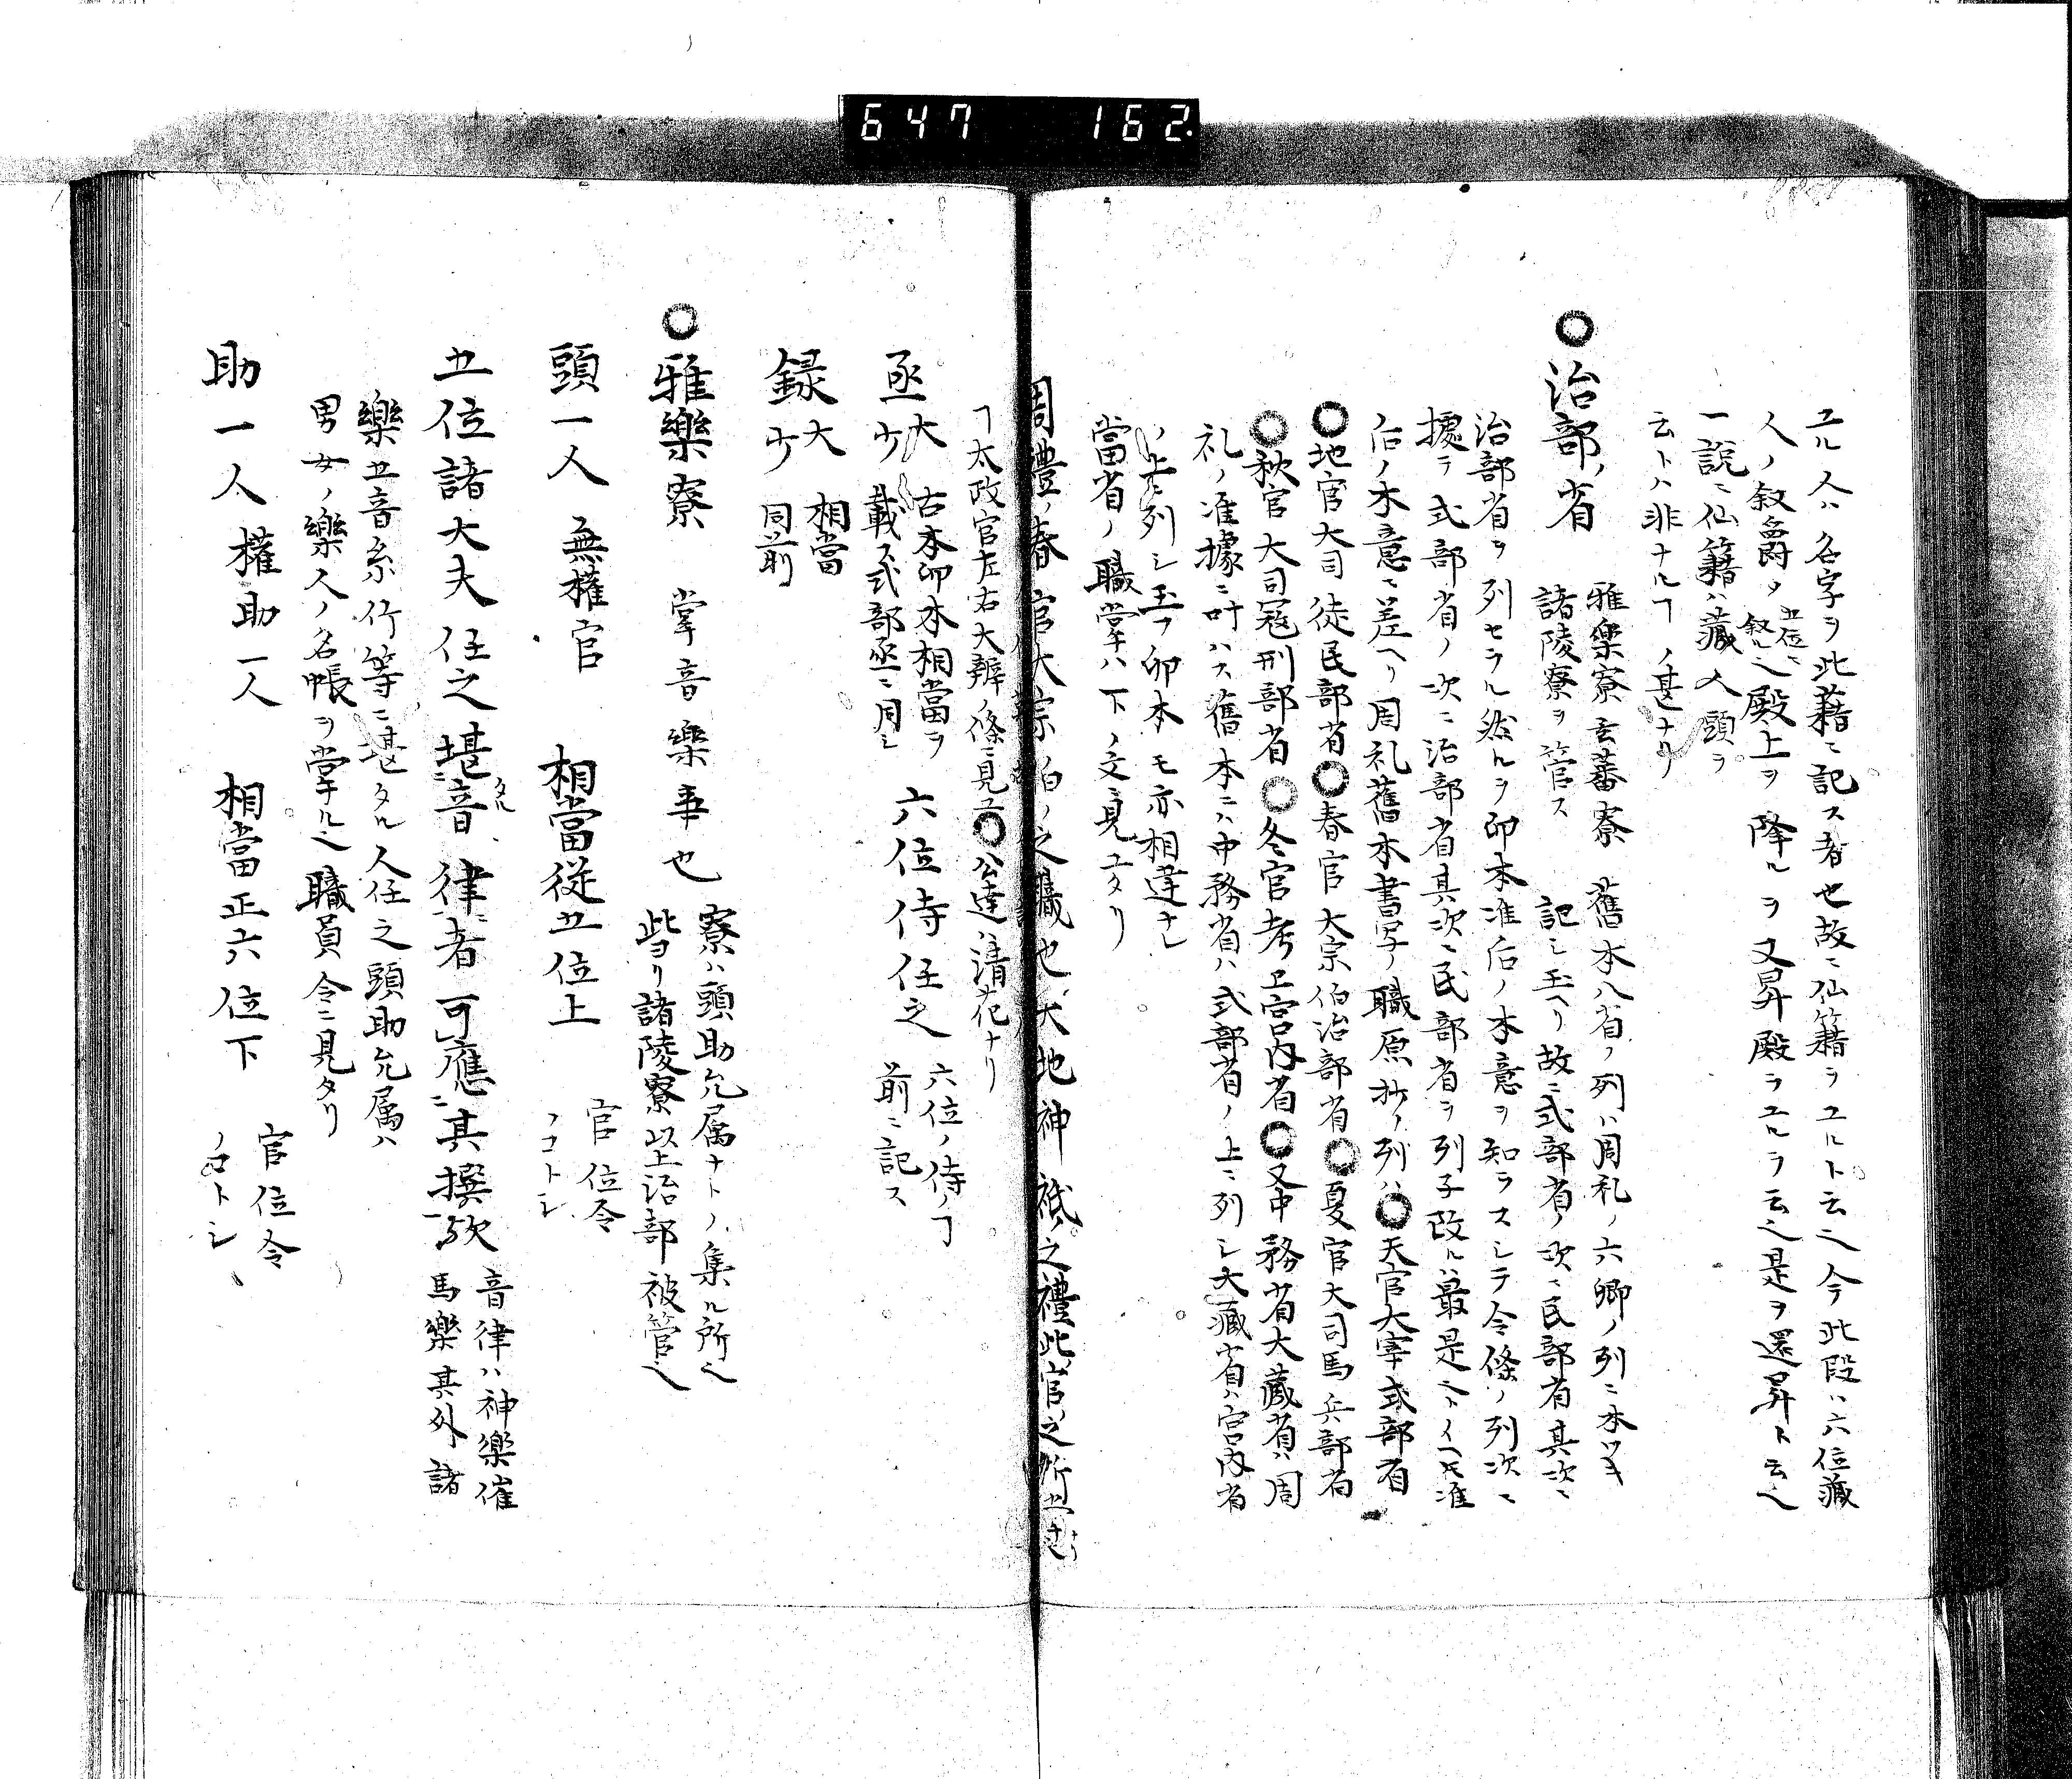 647 162
ユル人ハ名字ヲ此藉ニ記ス者也故ニ仙籍ヲユルト云々今此段ハ六位蔵
人ノ叙爵ヲ五位ニ叙ル也殿上ヲ降ルヲ又昇殿ヲユルヲ云也是ヲ還昇ト云也
一説ニ仙籍ハ藏人頭ヲ
云トハ非ナルヿノ甚ナリ
○治部ノ省 雅樂寮玄蕃寮 舊本八省ノ列ハ周礼ノ六卿ノ列ニ本ツキ
諸陵寮ヲ管ス 記シ玉ヘリ故ニ式部省ノ次ニ民部省其次ニ
治部省ヲ列セラル然ルヲ印本准后ノ本意ヲ知ラスシテ令條ノ列次ニ
據テ式部省ノ次ニ治部省其次ニ民部省ヲ列子改ルハ最是トイヘ𪜈准
后ノ本意ニ差ヘリ周礼舊本書写ノ職原抄ノ列ハ○天官大宰式部省
○地官大司徒民部省○春官大宗伯治部省○夏官大司馬兵部省
○秋官大司寇刑部省○冬官考工宮内省○又中務省大藏省ハ周
礼ノ准據ニ叶ハス舊本ニハ中務省ハ式部省ノ上ニ列シ大藏省ハ宮内省
ノ上ニ列シ玉フ印本モ亦相違ナシ
當省ノ職掌ハ下ノ文ニ見ユタリ
周禮ノ春官大宗伯ノ之職也天地神祇ノ之禮此官之所
ヿ太政官左右大辨ノ條ニ見ユ○公達ハ清花ナリ
丞大少 古本印本相當ヲ載ス式部丞ニ同シ 六位侍任之 六位ノ侍ノヿ前ニ記ス
録大少 相當同前
○雅樂寮 掌音樂事也 寮ハ頭助允属ナトノ集ル所也
此ヨリ諸陵寮以上治部被管也
頭一人 無權官 相當従五位上 官位令ノコトシ
五位諸大夫任之堪タル音律ニ者可應ニ其撰一歟 音律ハ神樂催馬樂其外諸
樂五音糸竹等ニ堪タル人任之頭助允属ハ
男女ノ樂人ノ名帳ヲ掌ル也職員令ニ見タリ
助一人權助一人 相當正六位下 官位令ノコトシ